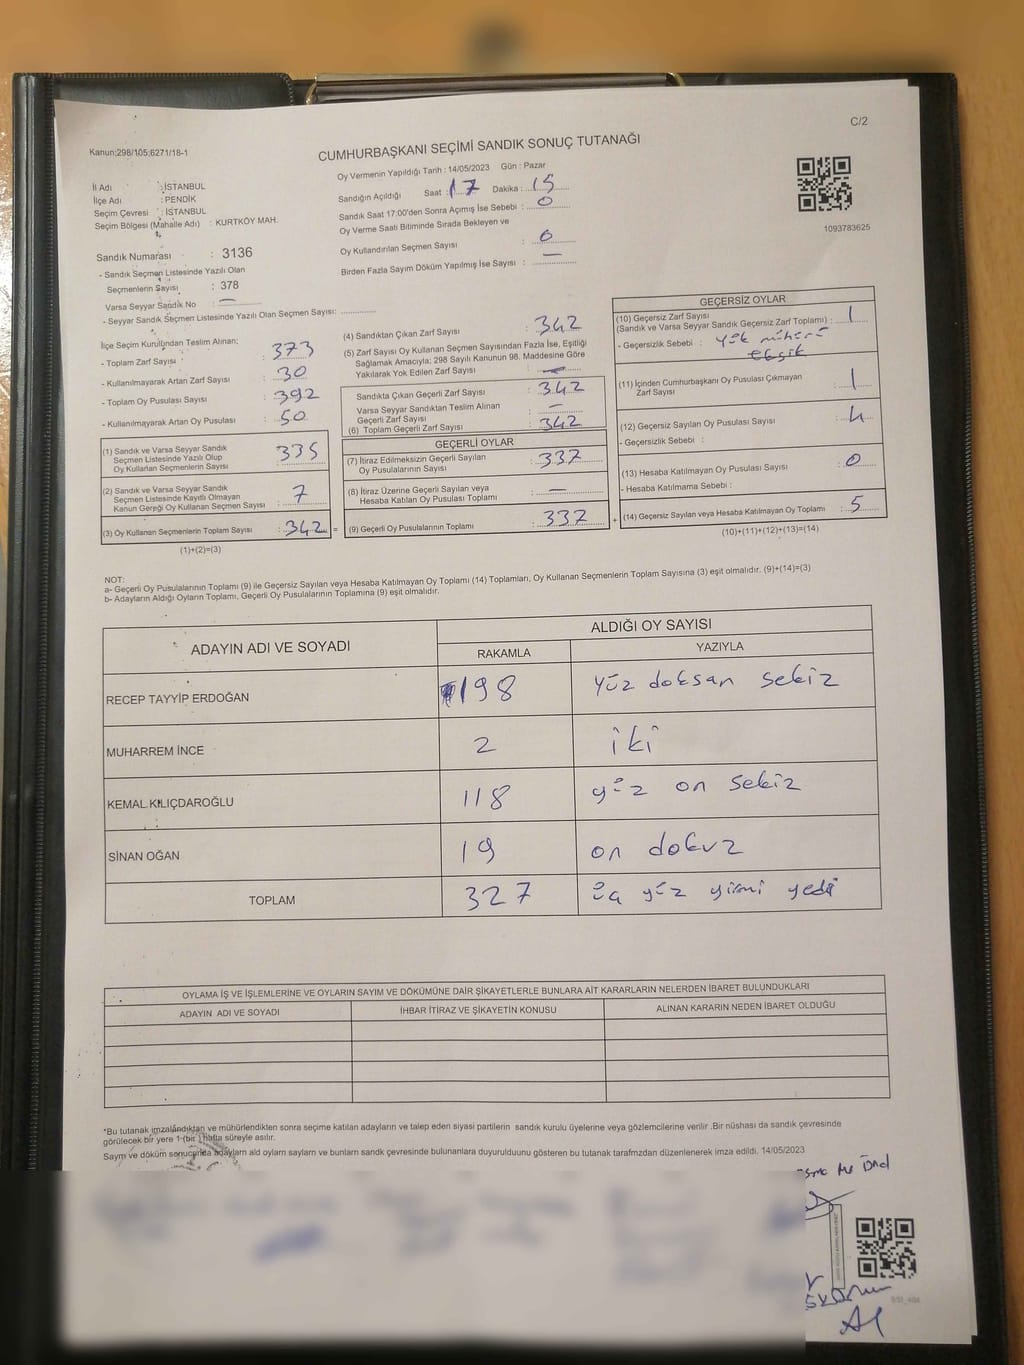 C/2
Kanun:298/105;6271/18-1
CUMHURBAŞKANI SEÇİMİ SANDIK SONUÇ TUTANAĞI
Oy Vermenin Yapıldığı Tarih : 14/05/2023 Gün : Pazar
İl Adı : İSTANBUL
İlçe Adı : PENDİK
Seçim Çevresi : İSTANBUL
Seçim Bölgesi (Mahalle Adı) : KURTKÖY MAH.
Sandığın Açıldığı Saat : 17 Dakika : 15
Sandık Saat 17:00'den Sonra Açımış İse Sebebi : 0
Oy Verme Saati Bitiminde Sırada Bekleyen ve
Oy Kullandırılan Seçmen Sayısı : 0
Birden Fazla Sayım Döküm Yapılmış İse Sayısı : —
1093783625
Sandık Numarası : 3136
- Sandık Seçmen Listesinde Yazılı Olan
Seçmenlerin Sayısı : 378
Varsa Seyyar Sandık No : —
- Seyyar Sandık Seçmen Listesinde Yazılı Olan Seçmen Sayısı:
İlçe Seçim Kurulundan Teslim Alınan;
- Toplam Zarf Sayısı : 373
- Kullanılmayarak Artan Zarf Sayısı : 30
- Toplam Oy Pusulası Sayısı : 392
- Kullanılmayarak Artan Oy Pusulası : 50
(1) Sandık ve Varsa Seyyar Sandık
Seçmen Listesinde Yazılı Olup
Oy Kullanan Seçmenlerin Sayısı : 335
(2) Sandık ve Varsa Seyyar Sandık
Seçmen Listesinde Kayıtlı Olmayan
Kanun Gereği Oy Kullanan Seçmen Sayısı : 7
(3) Oy Kullanan Seçmenlerin Toplam Sayısı : 342 =
(1)+(2)=(3)
(4) Sandıktan Çıkan Zarf Sayısı : 342
(5) Zarf Sayısı Oy Kullanan Seçmen Sayısından Fazla İse, Eşitliği
Sağlamak Amacıyla; 298 Sayılı Kanunun 98. Maddesine Göre
Yakılarak Yok Edilen Zarf Sayısı : —
Sandıkta Çıkan Geçerli Zarf Sayısı : 342
Varsa Seyyar Sandıktan Teslim Alınan
Geçerli Zarf Sayısı : —
(6) Toplam Geçerli Zarf Sayısı : 342
GEÇERLİ OYLAR
(7) İtiraz Edilmeksizin Geçerli Sayılan
Oy Pusulalarının Sayısı : 337
(8) İtiraz Üzerine Geçerli Sayılan veya
Hesaba Katılan Oy Pusulası Toplamı : —
(9) Geçerli Oy Pusulalarının Toplamı : 337 +
GEÇERSİZ OYLAR
(10) Geçersiz Zarf Sayısı
(Sandık ve Varsa Seyyar Sandık Geçersiz Zarf Toplamı) : 1
- Geçersizlik Sebebi : mühürü
eksik
(11) İçinden Cumhurbaşkanı Oy Pusulası Çıkmayan
Zarf Sayısı : 1
(12) Geçersiz Sayılan Oy Pusulası Sayısı : 4
- Geçersizlik Sebebi :
(13) Hesaba Katılmayan Oy Pusulası Sayısı : 0
- Hesaba Katılmama Sebebi :
(14) Geçersiz Sayılan veya Hesaba Katılmayan Oy Toplamı : 5
(10)+(11)+(12)+(13)=(14)
NOT:
a- Geçerli Oy Pusulalarının Toplamı (9) ile Geçersiz Sayılan veya Hesaba Katılmayan Oy Toplamı (14) Toplamları, Oy Kullanan Seçmenlerin Toplam Sayısına (3) eşit olmalıdır. (9)+(14)=(3)
b- Adayların Aldığı Oyların Toplamı, Geçerli Oy Pusulalarının Toplamına (9) eşit olmalıdır.
ADAYIN ADI VE SOYADI ALDIĞI OY SAYISI
RAKAMLA YAZIYLA
RECEP TAYYİP ERDOĞAN 198 yüz doksan sekiz
MUHARREM İNCE 2 iki
KEMAL KILIÇDAROĞLU 118 yüz on sekiz
SİNAN OĞAN 19 on dokuz
TOPLAM 327 üç yüz yirmi yedi
OYLAMA İŞ VE İŞLEMLERİNE VE OYLARIN SAYIM VE DÖKÜMÜNE DAİR ŞİKAYETLERLE BUNLARA AİT KARARLARIN NELERDEN İBARET BULUNDUKLARI
ADAYIN ADI VE SOYADI İHBAR İTİRAZ VE ŞİKAYETİN KONUSU ALINAN KARARIN NEDEN İBARET OLDUĞU
*Bu tutanak imzalandıktan ve mühürlendikten sonra seçime katılan adayların ve talep eden siyasi partilerin sandık kurulu üyelerine veya gözlemcilerine verilir .Bir nüshası da sandık çevresinde
görülecek bir yere 1 (bir ) hafta süreyle asılır.
Sayım ve döküm sonuçında adayların ald oyların sayları ve bunların sandk çevresinde bulunanlara duyurulduunu gösteren bu tutanak tarafmzdan düzenlenerek imza edildi. 14/05/2023